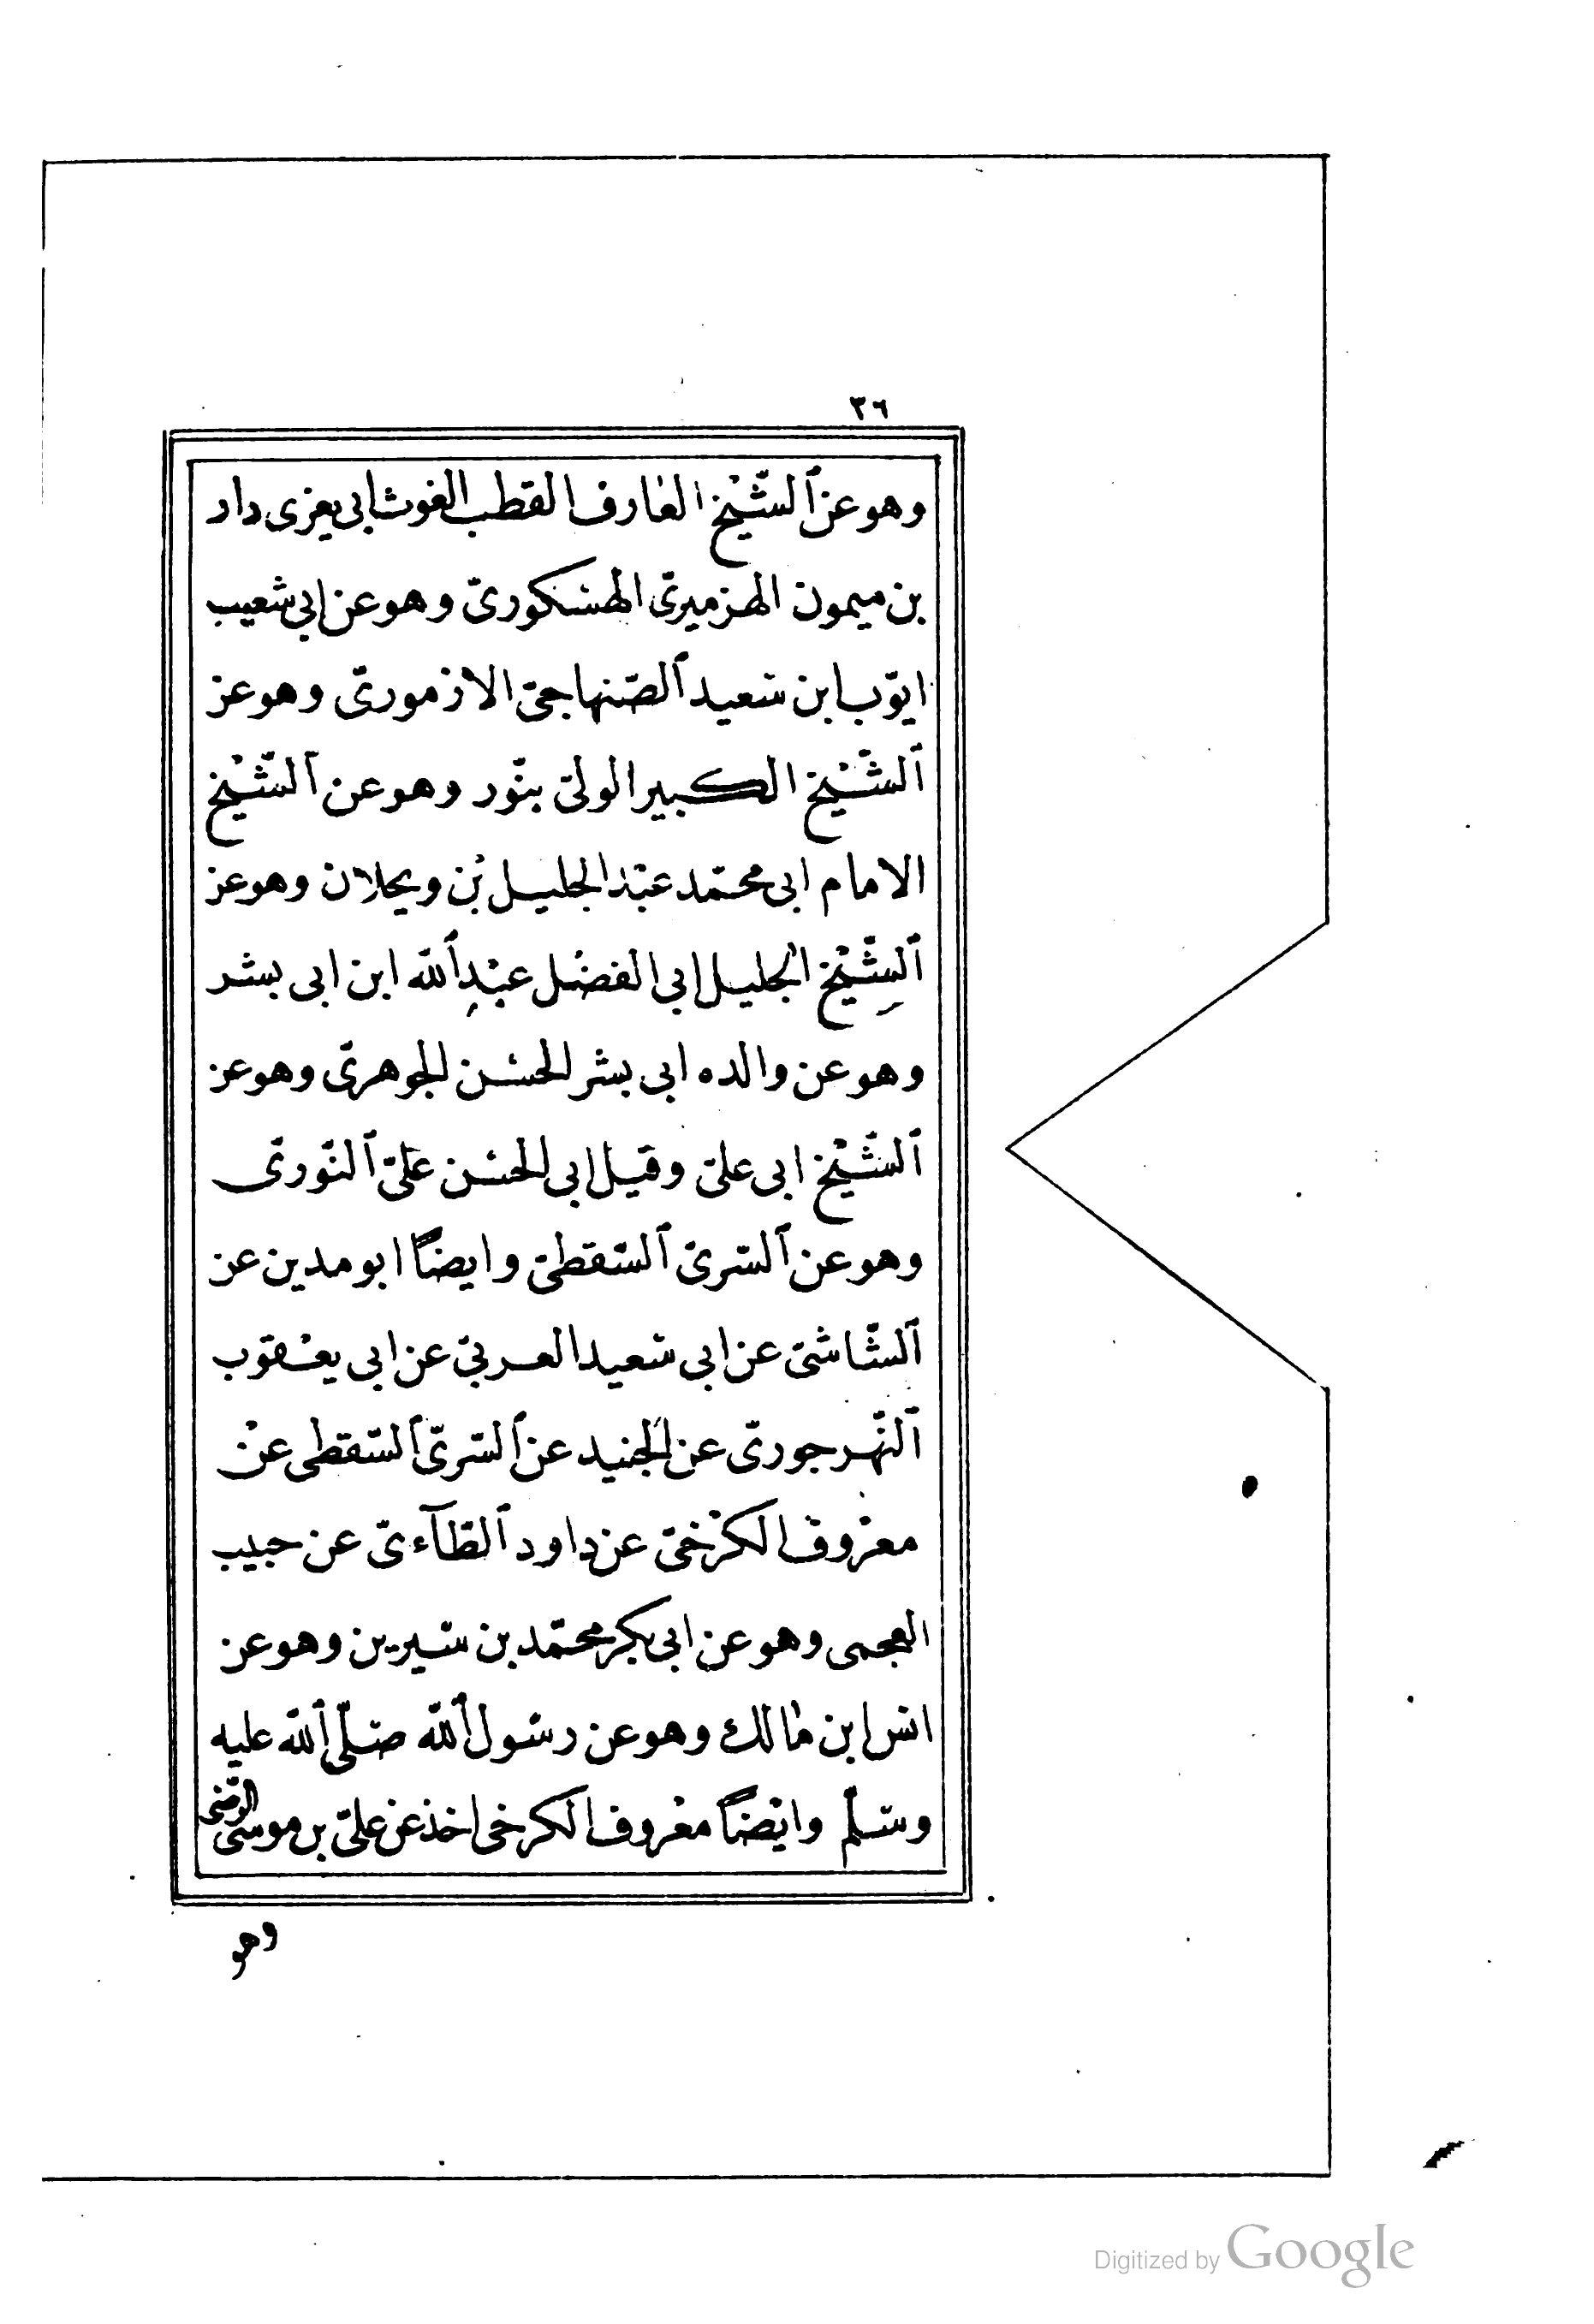 ٣٦
وهو عن ٱلشّيْخ العارف القطب الغوث ابى يعزى دار
بن ميمون الهزميرىّ الهسكورىّ وهو عن ابى شعيب
ايّوب ابن سعيد ٱلصّنهاجىّ الازمورىّ وهو عن
ٱلشّيْخ الكبير الولىّ بنّور وهو عن ٱلشّيْخ
الامام ابى محمّد عبْد الجليل بْن ويحلان وهو عن
ٱلشّيْخ الجليل ابى الفضْل عبْدِ ٱللّه ابن ابى بشر
وهو عن والده ابى بشر الحسْن الجوهرىّ وهو عن
ٱلشّيْخ ابى علىّ وقيل ابى الحسْن علىّ ٱلنّورى
وهو عن ٱلسّرىّ ٱلسّقطىّ وايضًا ابو مدين عن
ٱلشّاشىّ عن ابى سعيد العربىّ عن ابى يعْقوب
ٱلنّهرجورىّ عن الجنيد عن ٱلسّرىّ ٱلسّقطى عنْ
معرْوف الكرْخىّ عن داود ٱلطّآءىّ عن حبيب
العجمى وهو عن ابى بكر محمّد بن سيرين وهو عن
انس ابن مالك وهو عن رسول ٱللّه صلّى ٱللّه عليه
وسلّم وايْضًا معْروف الكرخى اخذ عن علىّ بن موسى الرّضى
وهو
Digitized by Google